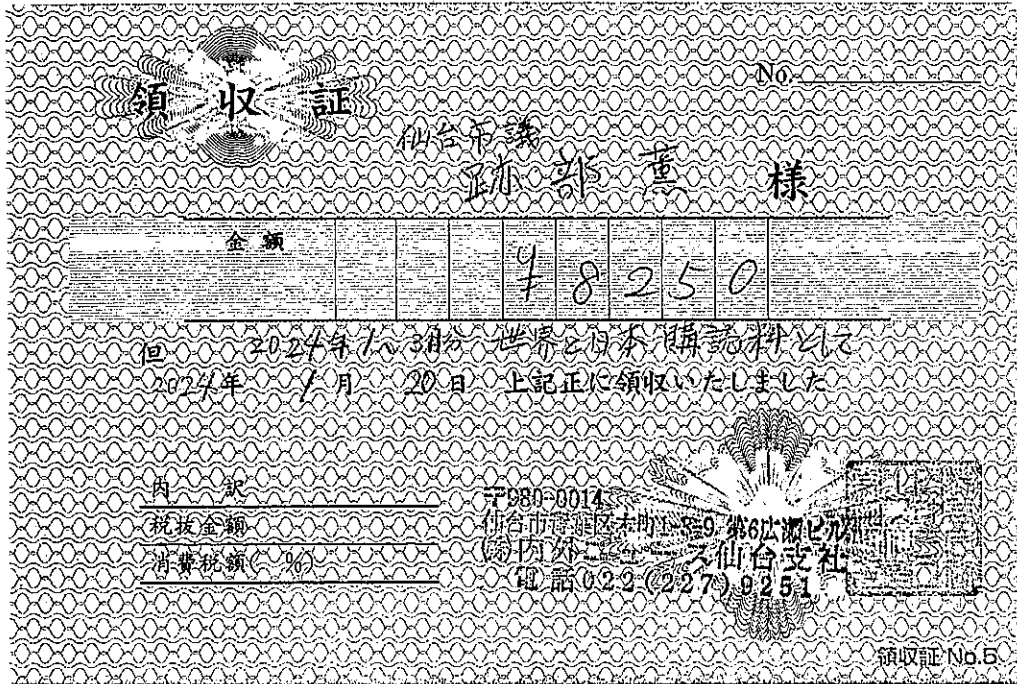 領収証
No.
仙台市議
跡部薫 様
金額 ¥8250
但 2024年1~3月分 世界と日本 購読料として
2024年 1月 20日 上記正に領収いたしました
内訳
税抜金額
消費税額( %)
〒980-0014
仙台市青葉区本町 9 第6広瀬ビル
(株)内外ニュース仙台支社
電話022(227)9251
領収証 No.5